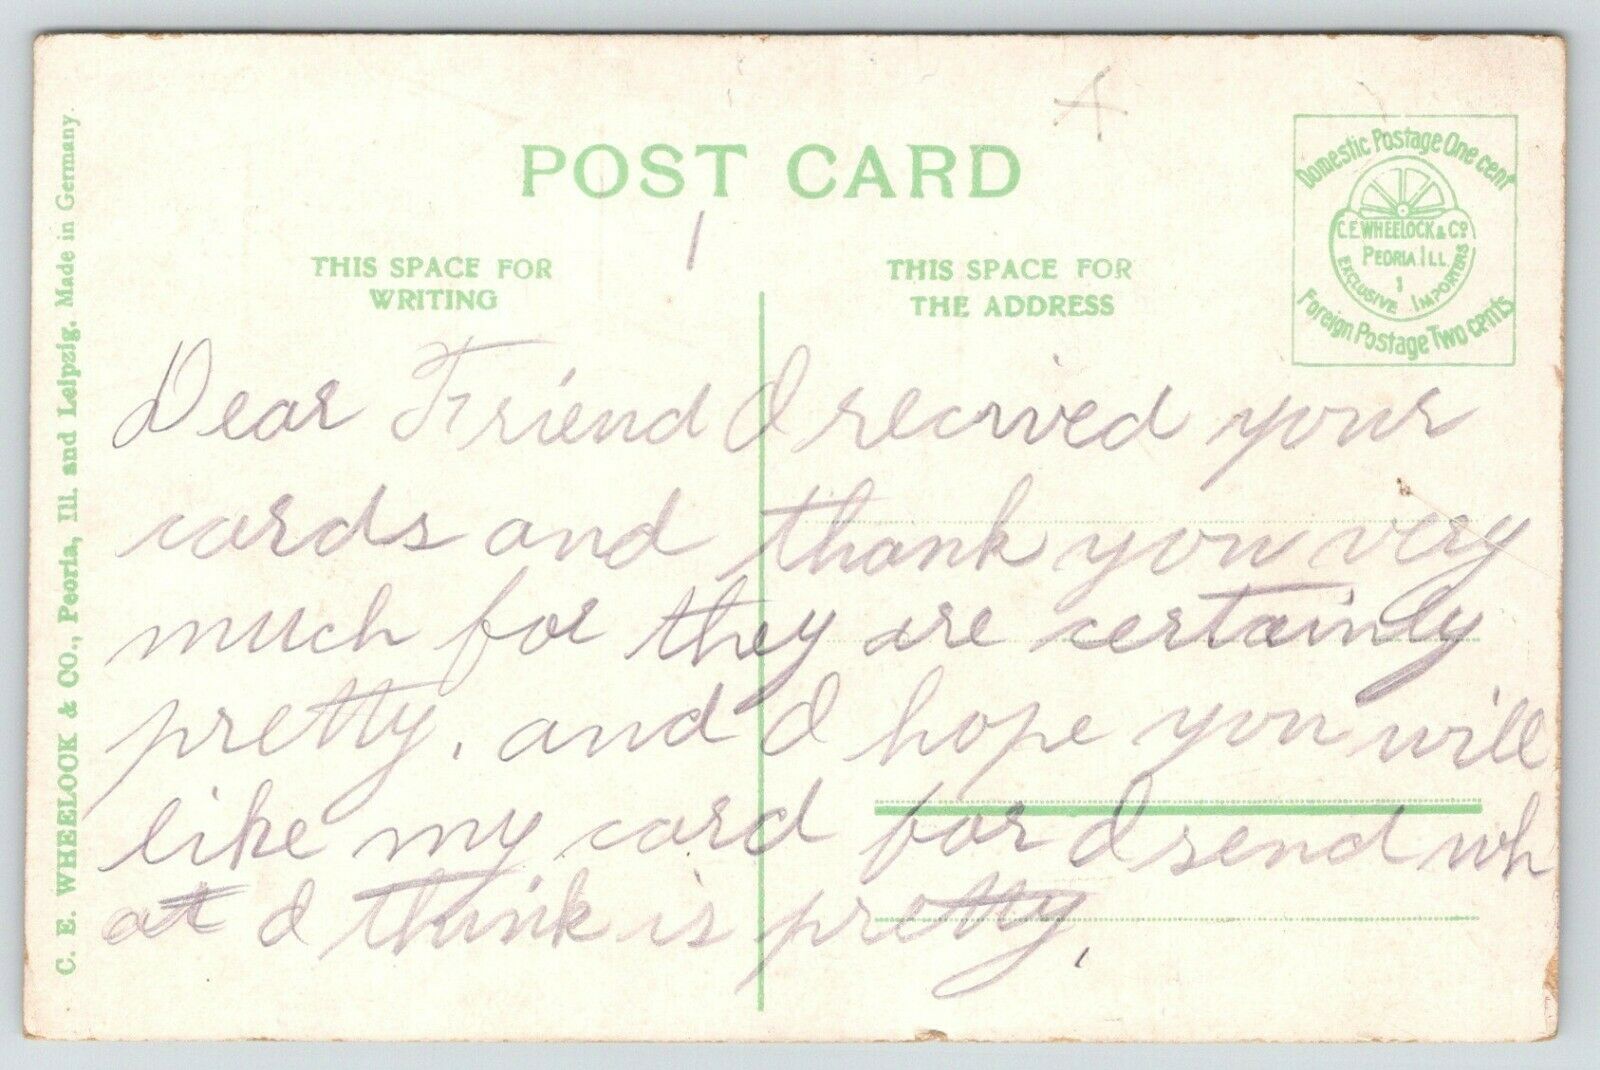 POST CARD
1
THIS SPACE FOR
WRITING
THIS SPACE FOR
THE ADDRESS
Domestic Postage One cent
C.E. WHEELOCK & Co
PEORIA ILL.
1
EXCLUSIVE IMPORTERS
Foreign Postage Two cents
C. E. WHEELOCK & CO., Peoria, Ill. and Leipzig. Made in Germany.
Dear Friend I recived your
cards and thank you very
much for they are certainly
pretty. and I hope you will
like my card for I send wh
at I think is pretty.